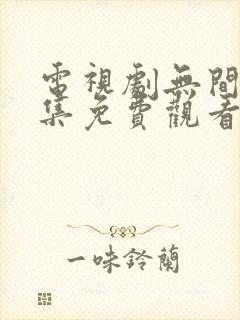 電視劇無間
集免費觀看
一味鈴蘭